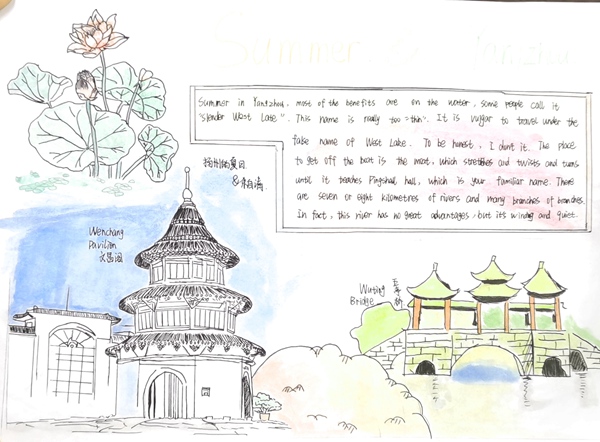 Summer in Yangzhou
Summer in Yangzhou, most of the benefits are on the water, some people call it
"Slender West Lake". This name is really too "thin". It is vulgar to travel under the
fake name of West Lake. To be honest, I don't it. The place
to get off the boat is the moat, which stretches and twists and turns
until it teaches Pingshan hall, which is your familiar name. There
are seven or eight kilometres of rivers and many branches of branches.
In fact, this river has no great advantages, but its winding and quiet.
扬州的夏日
&朱自清
Wenchang
Pavilion
文昌阁
Wuting
Bridge
五亭桥